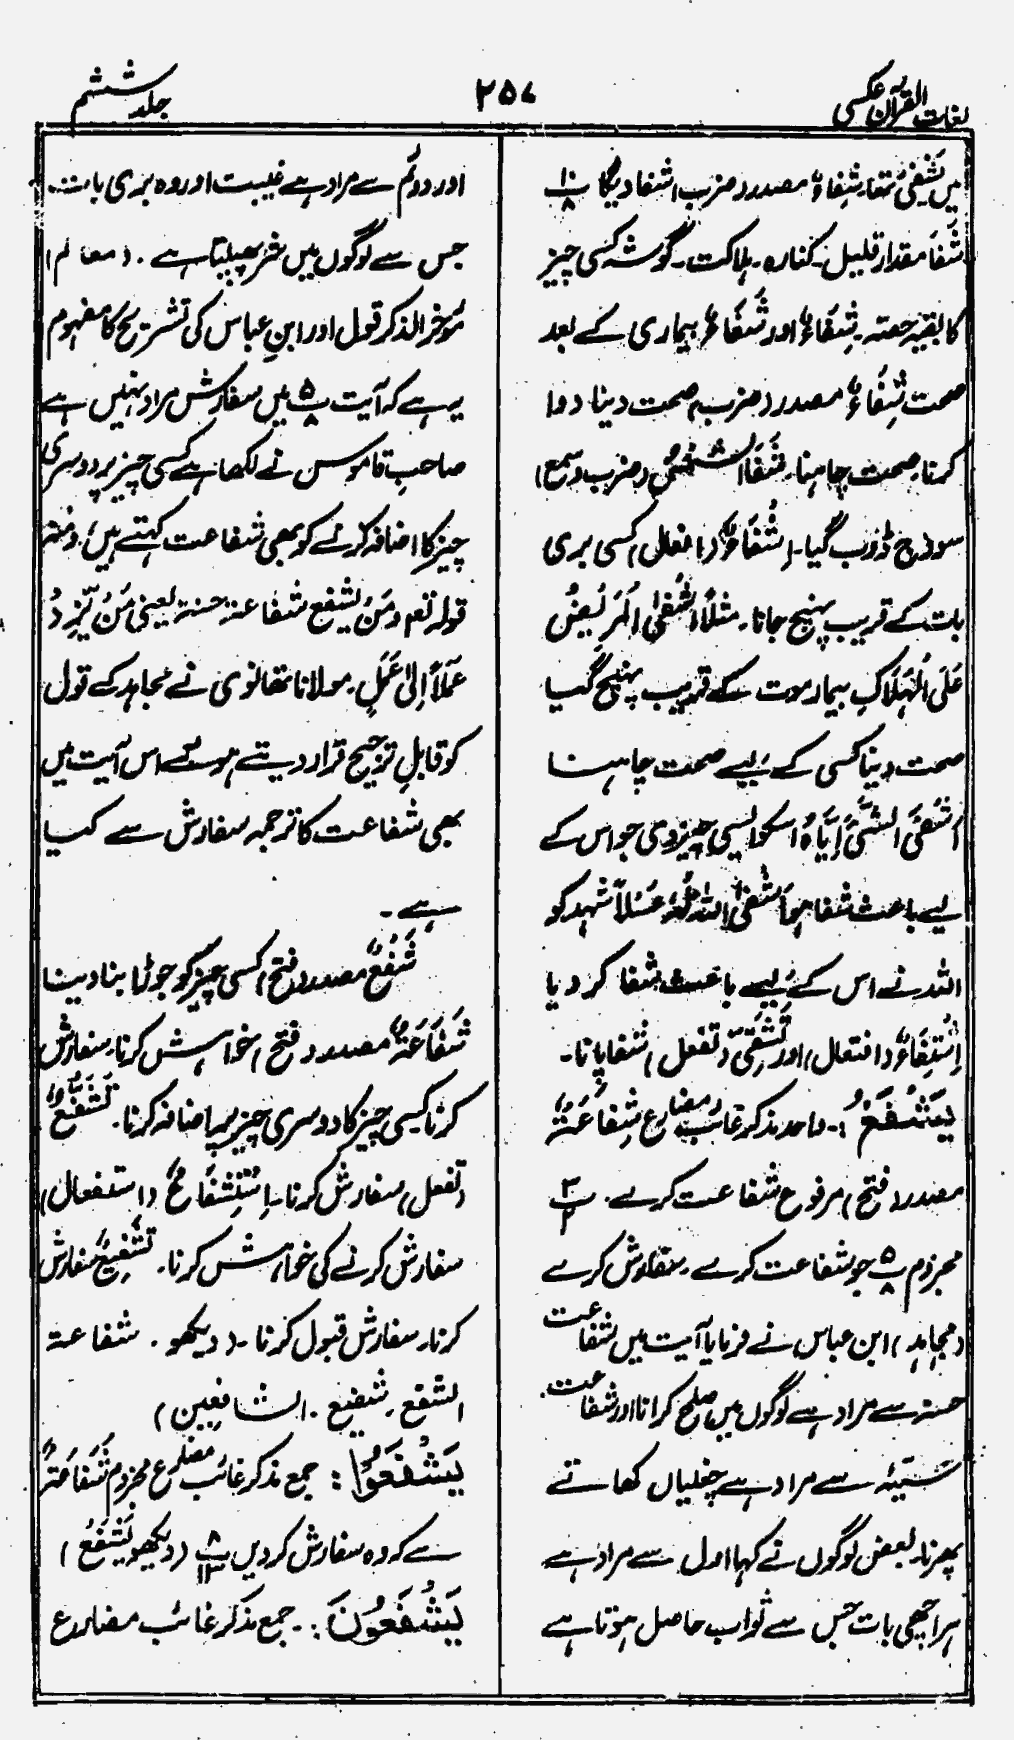 لغات القرآن عکسی
۲۵۷
جلد ششم
میں یَشْفِیْ شَفَا، شِفَاءٌ مصدر (ضرب) شفا دیگا پ ۱۰/۸
شَفَا مقدار قلیل۔ کنارہ۔ ہلاکت۔ گوشہ کسی چیز
کا بقیہ حصتہ۔ شِفَاءٌ اور شَفَاءٌ بیماری کے بعد
صحت شِفَاءٌ مصدر (ضرب) صحت دینا دوا
کرنا۔ صحت چاہنا۔ شَفَا الشَّمْسُ (ضرب وسمع)
سورج ڈوب گیا۔ اِشْفَاءٌ (افعال) کسی بری
بات کے قریب پہنچ جانا۔ مثلاً اَشْفَی الْمَرِیْضُ
عَلَی الْهَلَاكِ بیمار موت کے قریب پہنچ گیا
صحت دینا کسی کے لیے صحت چاہنا
اَشْفَی الشَّیْءَ اِیَّاہُ اسکو ایسی چیز دی جو اس کے
لیے باعث شفا ہو اَشْفَی اللّٰہُ عَسَلاً شہد کو
اللہ نے اس کے لیے باعث شفا کر دیا
اِسْتِشْفَاءٌ (افتعال) اور تَشَفِّیْ (تفعل) شفا پانا۔
یَشْفَعُ :۔ واحد مذکر غائب مضارع شَفَاعَۃٌ
مصدر (فتح) مرفوع شفاعت کرے۔ پ ۳/۲
مجزوم پ ۵/۸ جو شفاعت کرے۔ سفارش کرے
(مجاہد) ابن عباس نے فرمایا آیت میں شفاعت
حسنہ سے مراد ہے لوگوں میں صلح کرانا اور شفاعت
سَیِّئَہ سے مراد ہے چغلیاں کھاتے
پھرنا۔ بعض لوگوں نے کہا اول سے مراد ہے
ہر اچھی بات جس سے ثواب حاصل ہوتا ہے
اور دوئم سے مراد ہے غیبت اور وہ بری بات
جس سے لوگوں میں شر پھیلتا ہے۔ (معالم)
مؤخر الذکر قول اور ابنِ عباس کی تشریح کا مفہوم
یہ ہے کہ آیت پ ۵/۸ میں سفارش مراد نہیں ہے
صاحبِ قاموس نے لکھا ہے کسی چیز پر دوسری
چیز کا اضافہ کرنے کو بھی شفاعت کہتے ہیں، ومنہ
قولہ تعم وَمَنْ یَّشْفَعْ شفاعۃ حسنۃ یعنی مَنْ یَّزِدْ
عَمَلاً اِلیٰ عَمَلٍ۔ مولانا تھانوی نے مجاہد کے قول
کو قابلِ ترجیح قرار دیتے ہوئے اس آیت میں
بھی شفاعت کا ترجمہ سفارش سے کیا
ہے۔
شَفْعٌ مصدر (فتح) کسی چیز کو جوڑا بنا دینا
شَفَاعَۃٌ مصدر (فتح) خواہش کرنا۔ سفارش
کرنا کسی چیز کا دوسری چیز پر اضافہ کرنا۔ تَشَفُّعٌ
(تفعل) سفارش کرنا۔ اِسْتِشْفَاعٌ (استفعال)
سفارش کرنے کی خواہش کرنا۔ تَشْفِیْعٌ سفارش
کرنا۔ سفارش قبول کرنا۔ (دیکھو۔ شفاعۃ
الشفع۔ شفیع۔ الشافعین)
یَشْفَعُوْا : جمع مذکر غائب مضارع مجزوم شَفَاعَۃٌ
سے کہ وہ سفارش کر دیں پ ۸/۱۳ (دیکھو یَشْفَعُ)
یَشْفَعُوْنَ :۔ جمع مذکر غائب مضارع